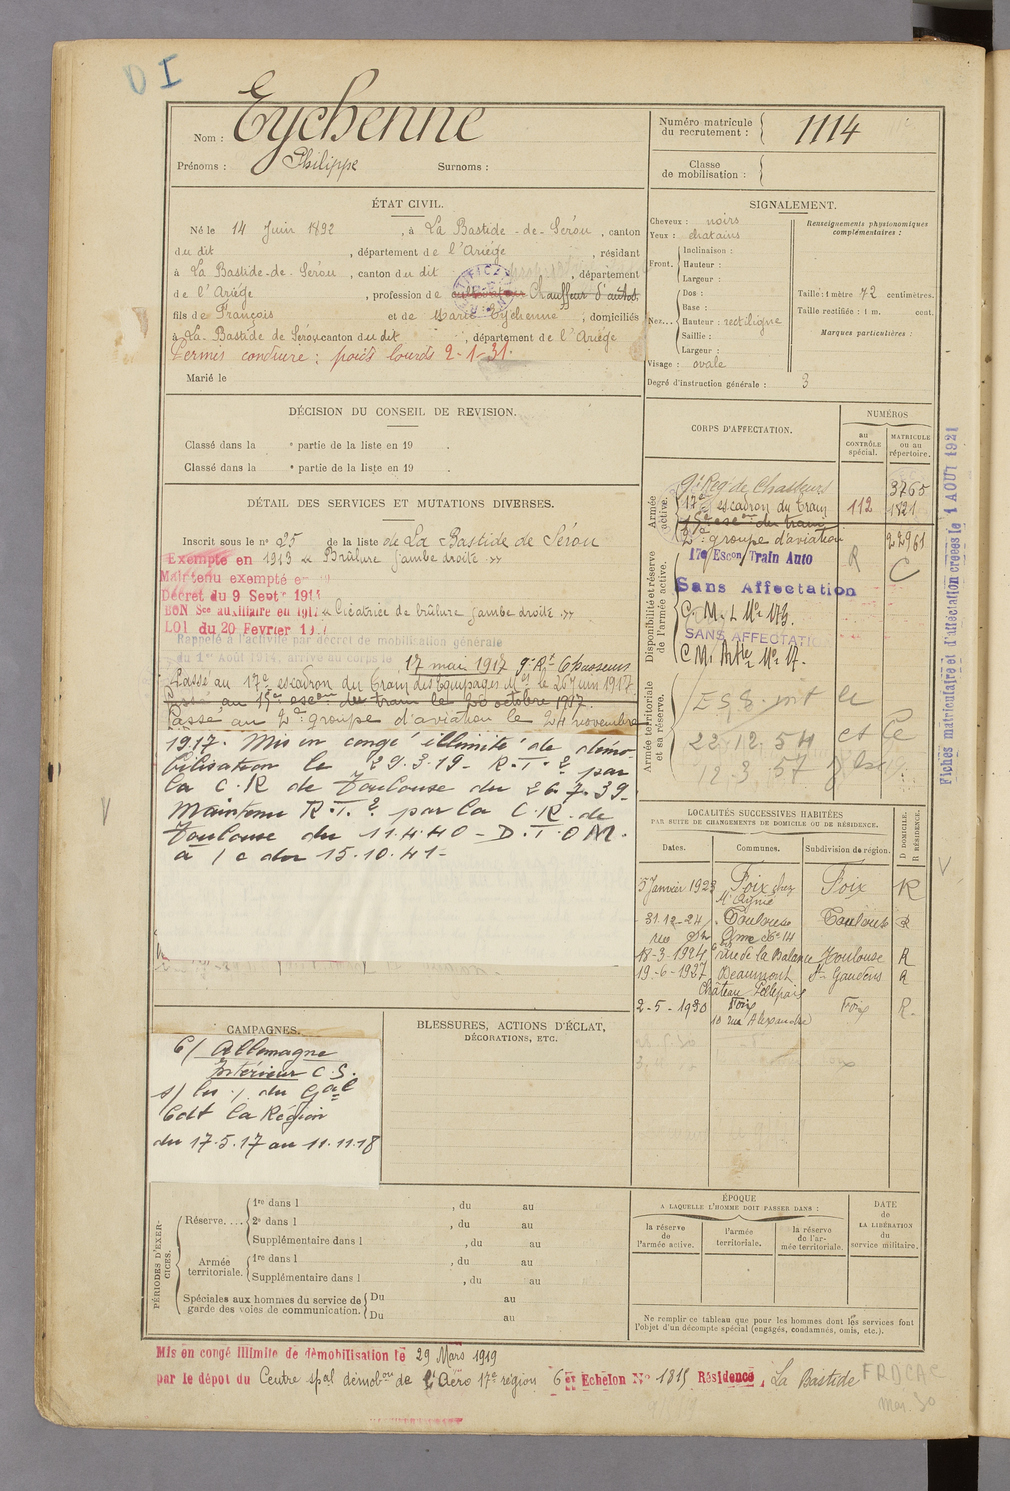 D I
Nom : Eychenne
Prénoms : Philippe Surnoms :
Numéro matricule du recrutement : 1114
Classe de mobilisation :
ÉTAT CIVIL.
Né le 14 Juin 1892, à La Bastide-de-Sérou, canton
du dit, département de l'Ariège, résidant
à La Bastide-de-Sérou, canton du dit, département
de l'Ariège, profession de cultivateur Chauffeur d'autos
fils de François et de Marie Eychenne, domiciliés
à La Bastide de Sérou canton du dit, département de l'Ariège
Permis conduire : poids lourds 2-1-31.
Marié le
SIGNALEMENT.
Cheveux : noirs
Yeux : chatains
Front. Inclinaison :
Hauteur :
Largeur :
Nez... Dos :
Base :
Hauteur : rectiligne
Saillie :
Largeur :
Visage : ovale
Renseignements physionomiques complémentaires :
Taille : 1 mètre 72 centimètres.
Taille rectifiée : 1 m. cent.
Marques particulières :
Degré d'instruction générale : 3
DÉCISION DU CONSEIL DE REVISION.
Classé dans la e partie de la liste en 19 .
Classé dans la e partie de la liste en 19 .
DÉTAIL DES SERVICES ET MUTATIONS DIVERSES.
Inscrit sous le n° 25 de la liste de La Bastide de Sérou
Exempté en 1913 « Brûlure jambe droite »
Maintenu exempté en
Décret du 9 Sept 1914
BON See auxiliaire en 1917 « Cicatrice de brûlure jambe droite »
LOI du 20 Février 1917
Rappelé à l'activité par décret de mobilisation générale
du 1er Août 1914, arrivé au corps le 17 mai 1917 9e Rt Chasseurs
Passé au 17e escadron du Train des Equipages Mres le 26 Juin 1917
Passé au 15e escon du train le 20 octobre 1917.
Passé au 2e groupe d'aviation le 24 novembre
1917. Mis en congé illimité de démo-
bilisation le 29.3.19- R.T.2 par
la C.R de Toulouse du 26.7.39-
Maintenu R.T.2 par la C.R. de
Toulouse du 11.4.40- D.T.O.M.
à / c du 15.10.41-
CORPS D'AFFECTATION.
NUMÉROS
au CONTRÔLE spécial.
MATRICULE ou au répertoire.
Armée active.
9e Reg de Chasseurs 3765
17e escadron du train 112 1821
15e escon du train
2e groupe d'aviation 27961
Disponibilité et réserve de l'armée active.
17e Escon Train Auto R C
Sans Affectation
C. M. L Me 173.
SANS AFFECTATION
C M. Artie Me 17.
Armée territoriale et sa réserve.
22.12.54
12.3.57
Fiches matriculaire et d'affectation créées le 1 AOUT 1921
LOCALITÉS SUCCESSIVES HABITÉES
PAR SUITE DE CHANGEMENTS DE DOMICILE OU DE RÉSIDENCE.
Dates. Communes. Subdivision de région. D DOMICILE. R RÉSIDENCE.
5 Janvier 1923 Foix chez Foix R
31.12-24 Toulouse Toulouse R
18-3-1924 rue de la Balance Toulouse R
19-6-1927 Beaumont St Gaudens R
Château
2-5-1930 Foix Foix R.
10 rue Alexandre
CAMPAGNES.
C/ Allemagne
Intérieur C.S.
du Gal
Cdt la Région
du 17.5.17 au 11.11.18
BLESSURES, ACTIONS D'ÉCLAT,
DÉCORATIONS, ETC.
PÉRIODES D'EXERCICES.
Réserve.... 1re dans l , du au
2e dans l , du au
Supplémentaire dans l , du au
Armée territoriale. 1re dans l , du au
Supplémentaire dans l , du au
Spéciales aux hommes du service de garde des voies de communication. Du au
Du au
ÉPOQUE
A LAQUELLE L'HOMME DOIT PASSER DANS :
la réserve de l'armée active.
l'armée territoriale.
la réserve de l'armée territoriale.
DATE de LA LIBÉRATION du service militaire.
Ne remplir ce tableau que pour les hommes dont les services font
l'objet d'un décompte spécial (engagés, condamnés, omis, etc.).
Mis en congé illimité de démobilisation le 29 Mars 1919
par le dépot du Centre spal démobon de l'Aéro 17e région 6e Echelon No 1815 Résidence, La Bastide